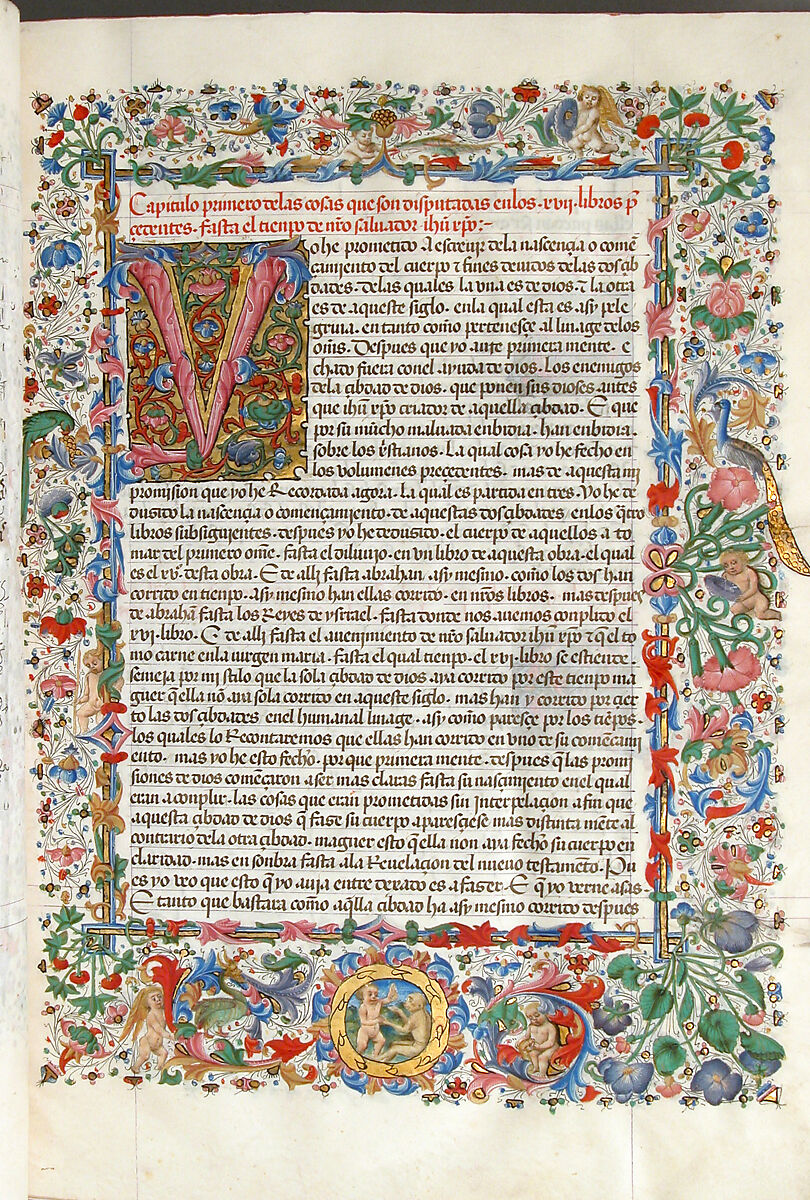 Capitulo primero delas cosas que son disputadas enlos .xvij. libros p̄
çedentes. fasta el tienpo de nr̄o saluador ihū xp̄o:-
Vo he prometido a escreuir dela nasçençia o comē
camiento del cuerpo τ fines deuidos delas dos çib
dades. delas quales la vna es de dios. τ la otra
es de aqueste siglo. enla qual esta es asy pele
grina. en tanto com̄o pertenesçe al linage delos
om̄s. Despues que yo ante primera mente. e
chado fuera conel ayuda de dios. Los enemigos
dela çibdad de dios. que ponen sus dioses antes
que ihū xp̄o criador de aquella çibdad. E que
por su mūcho maluada enbidia. han enbidia
sobre los xp̄stianos. La qual cosa yo he fecho en
los volumenes preçedentes. mas de aquesta mj
promision que yo he Recordada agora. la qual es partida en tres. Yo he de
dusido la nasçençia o començamiento. de aquestas dos çibdades. enlos q̄tro
libros subsiguientes. despues yo he dedusido. el cuerpo de aquellos a to
mar del primero om̄e. fasta el diluuio. en vn libro de aquesta obra. el qual
es el xv̊. desta obra. E de alli fasta abrahan. asy mesmo. com̄o los dos han
corrido en tienpo. asy mesmo han ellas corrido. en nr̄os libros. mas despues
de abrahā fasta los Reyes de ysrrael. fasta donde nos auemos conplido el
xvi. libro. E de alli fasta el auenimiento de nr̄o saluador ihū xp̄o τ q̄ el to
mo carne enla uirgen maria. fasta el qual tienpo. el xvij. libro se estiende.
semeja por mi stilo que la sola çibdad de dios aya corrido por este tienpo ma
guer q̄ ella nō aya sola corrido en aqueste siglo. mas han y corrido por çier
to las dos çibdades enel humanal linage. asy com̄o paresçe por los tiēpos.
los quales lo Recontaremos que ellas han corrido en vno de su comēcami
ento. mas yo he esto fecho. por que primera mente. despues q̄ las promi
siones de dios comēçaron a ser mas claras fasta su nasçimiento enel qual
eran a conplir. las cosas que eran prometidas sin interpelaçion a fin que
aquesta çibdad de dios q̄ fase su cuerpo aparesçiese mas distinta mēte al
contrario dela otra çibdad. maguer esto q̄ ella non aya fecho su cuerpo en
claridad. mas en sonbra fasta ala Reuelaçion del nueuo testamēto. Pu
es yo veo que esto q̄ yo auia entre dexado es a faser. E q̄ yo verne asas.
E tanto que bastara com̄o aq̄lla çibdad ha asy mesmo corrido despues